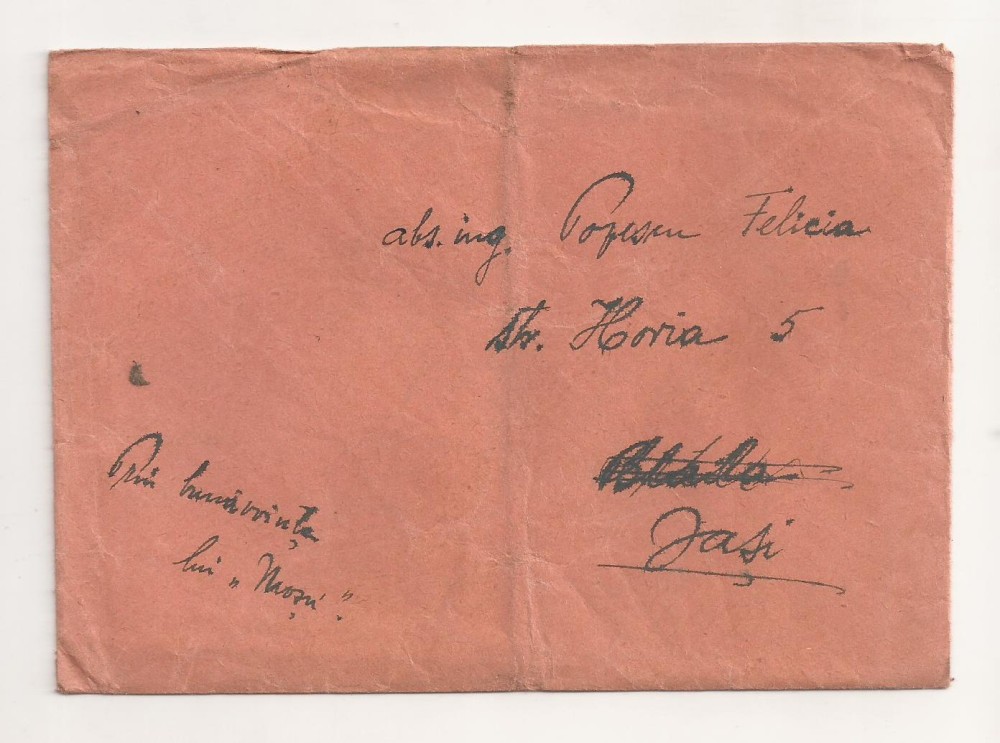 abs. ing. Popescu Felicia
str. Horia 5
Iași
Prin bunăvoința
lui "Moșu".